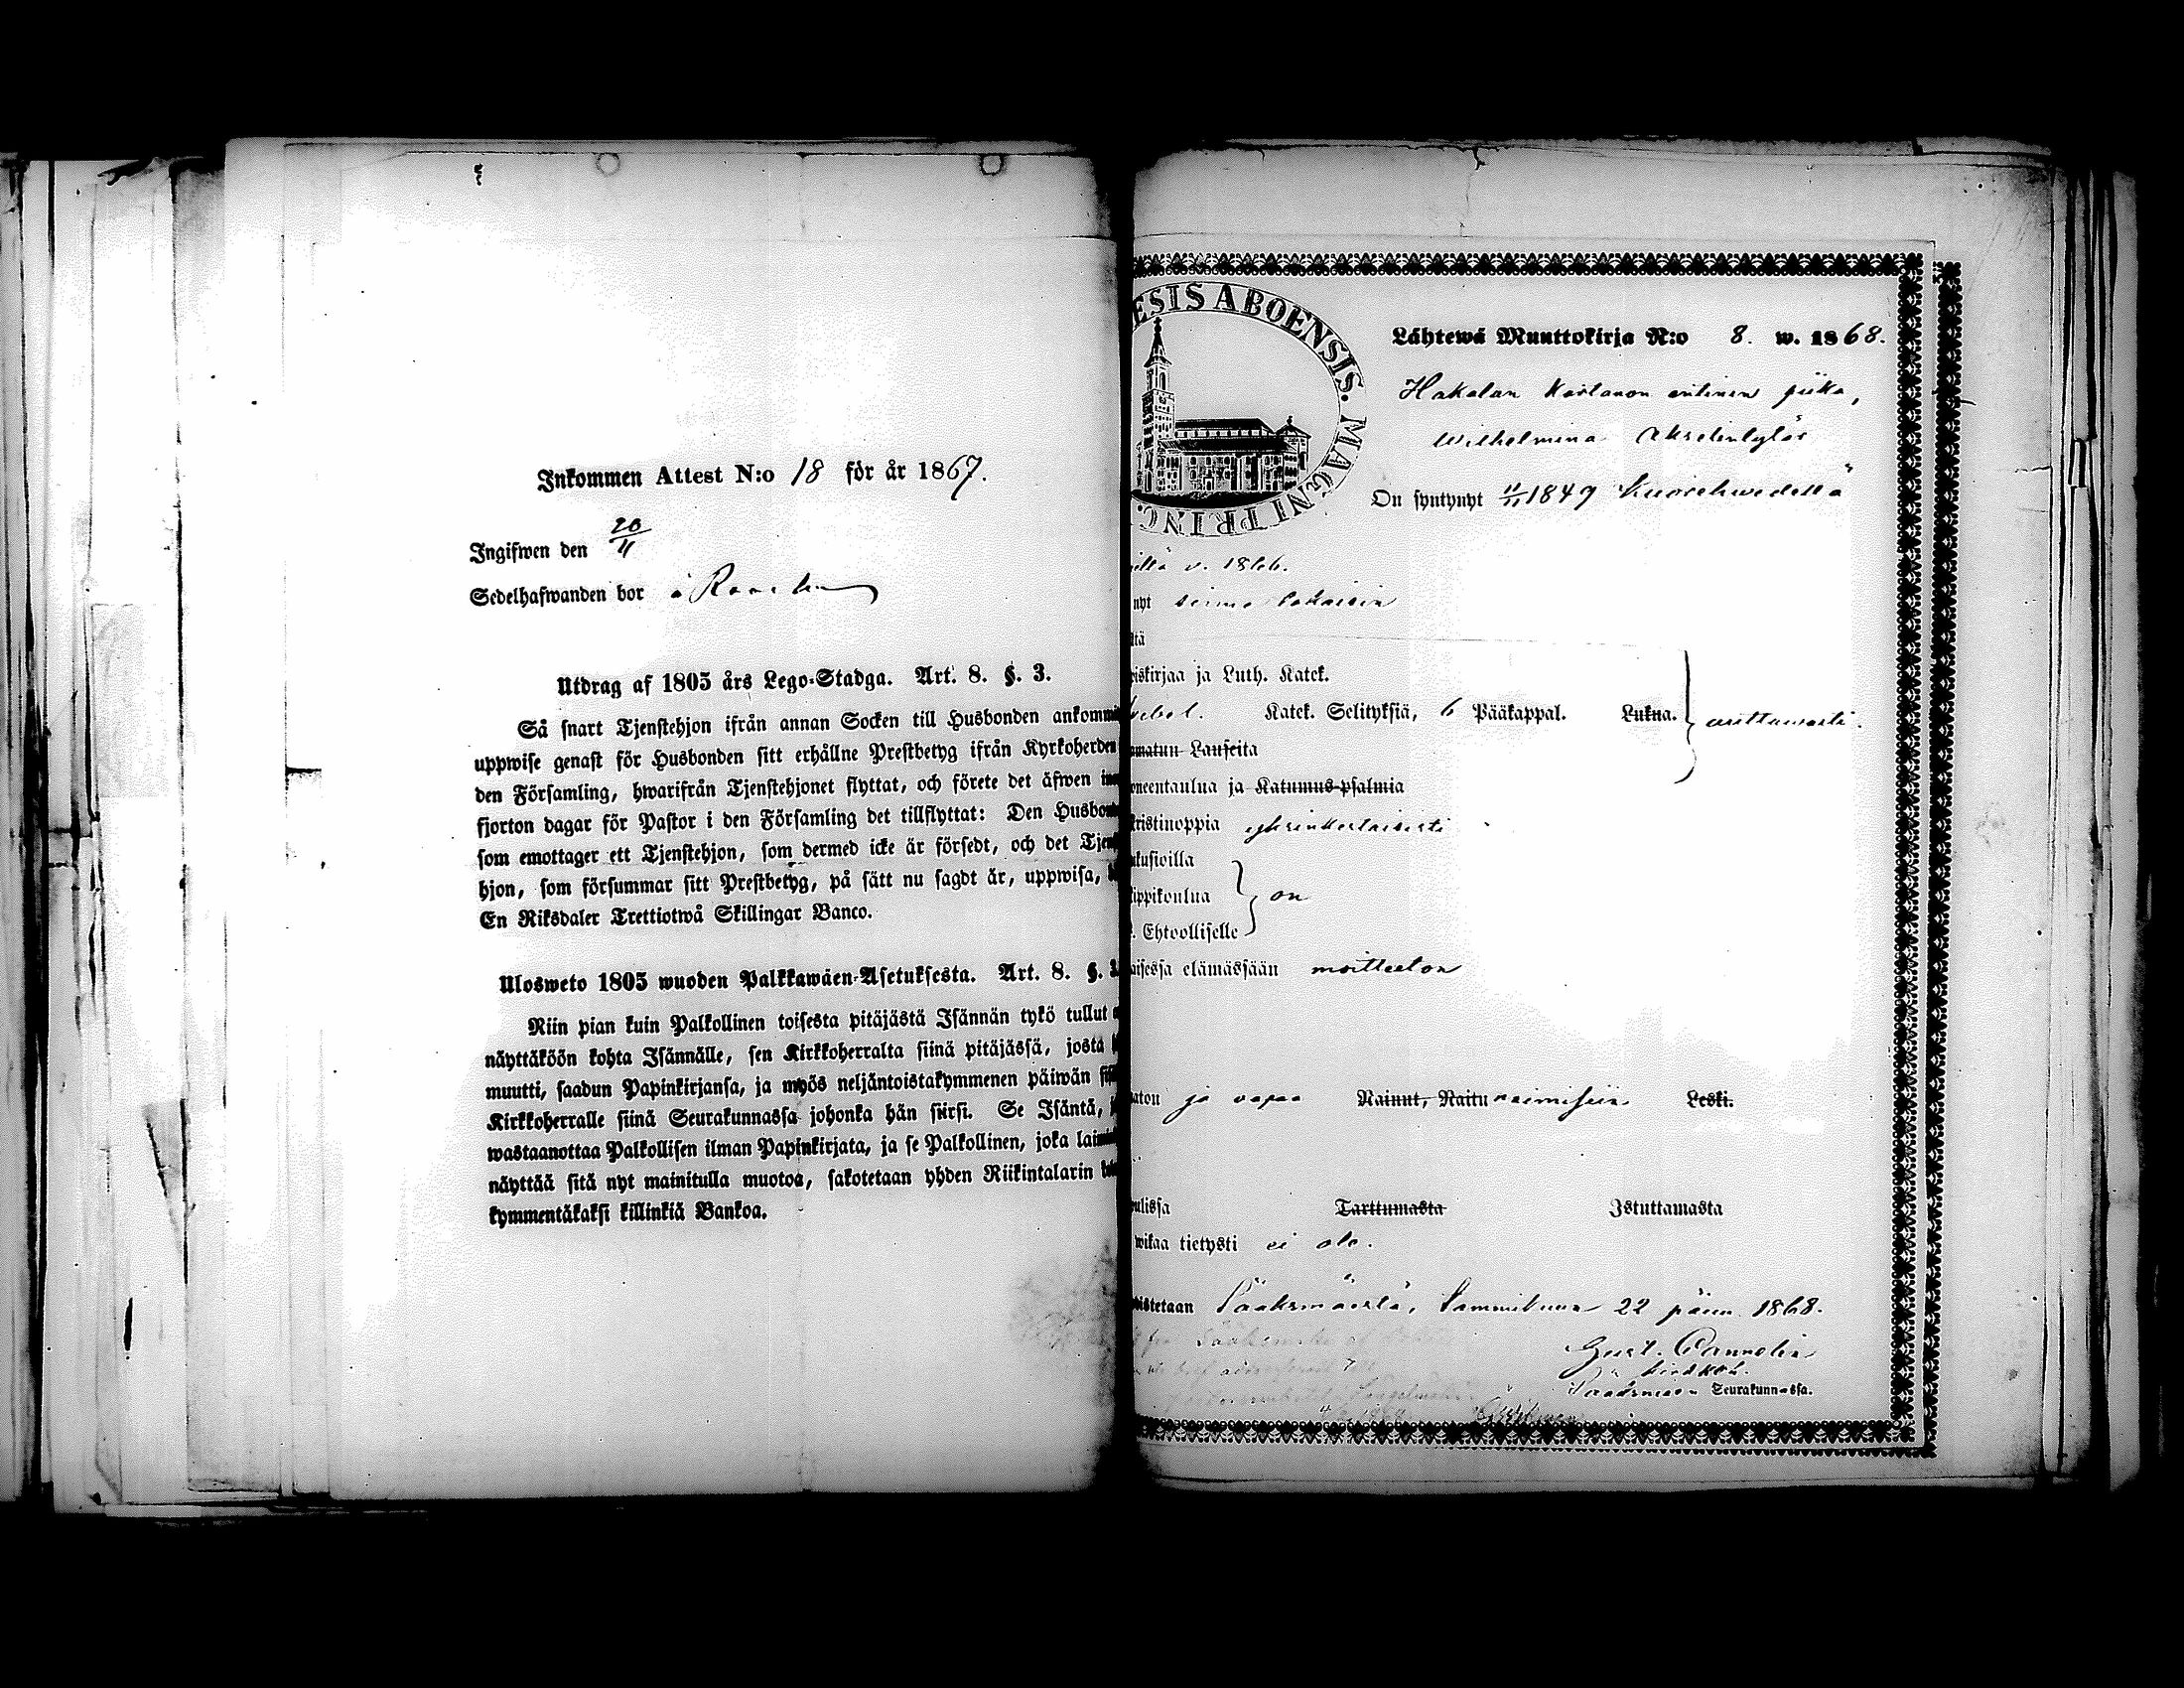 Inkommen Attest N:o 18 för år 1867.
Ingifwen den 20/11
Sedelhafwanden bor å
Utdrag af 1805 års Lego-Stadga. Art. 8. §. 3.
Så snart Tjenstehjon ifrån annan Socken till Husbonden ankommi
uppwise genast för Husbonden sitt erhållne Prestbetyg ifrån Kyrkoherden
den Församling, hwarifrån Tjenstehjonet flyttat, och förete det äfwen in
fjorton dagar för Pastor i den Församling det tillflyttat: Den Husbon
som emottager ett Tjenstehjon, som dermed icke är försedt, och det Tjen
hjon, som försummar sitt Prestbetyg, på sätt nu sagdt är, uppwisa,
En Riksdaler Trettiotwå Skillingar Banco.
Ulosweto 1805 wuoden Palkkawäen-Asetuksesta. Art. 8. §. 3.
Niin pian kuin Palkollinen toisesta pitäjästä Isännän tykö tullut
näyttäköön kohta Isännälle, sen Kirkkoherralta siinä pitäjässä, josta
muutti, saadun Papinkirjansa, ja myös neljäntoistakymmenen päiwän
Kirkkoherralle siinä Seurakunnassa johonka hän siirsi. Se Isäntä,
wastaanottaa Palkollisen ilman Papinkirjata, ja se Palkollinen, joka laimin
näyttää sitä nyt mainitulla muotoa, sakotetaan yhden Riikintalarin
kymmentäkaksi killinkiä Bankoa.
ESIS ABOENSIS. MAGNI PRINC.
Lähtewä Muuttokirja N:o 8. w. 1868.
Hakalan Kartanon entinen piika,
Wilhelmina Akselintytär
On syntynyt 11/11 1849 Kuorehwedellä
illä v. 1866.
nyt
ltä
iskirjaa ja Luth. Katek.
Katek. Selityksiä, 6 Pääkappal. Lukua. auttawasti.
omatun Lauseita
oneentaulua ja Katumus-psalmia
kristinoppia yksinkertaisesti
ukusioilla
rippikoulua on
. Ehtoolliselle
aisessa elämässään moitteeton
aton ja vapaa Nainut, Naitu naimiseen Leski.
ulissa Tarttumasta Istuttamasta
wikaa tietysti ei ole.
distetaan Sääksmäestä, Tammikuun 22 päiw. 1868.
Gust. Cannelin
kirkkoh.
Sääksmäen Seurakunnassa.